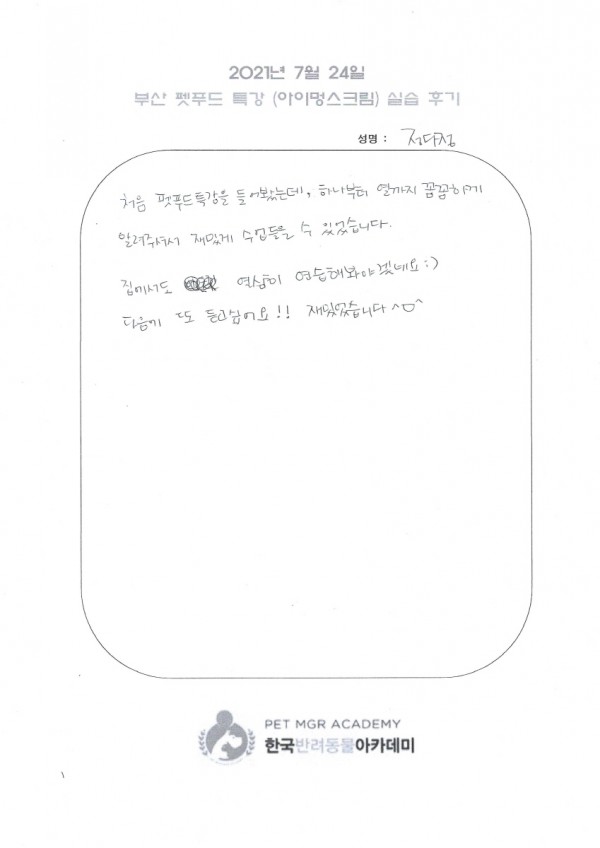 2021년 7월 24일
부산 펫푸드 특강 (아이멍스크림) 실습 후기
성명 : 정다정
처음 펫푸드특강을 들어봤는데, 하나부터 열까지 꼼꼼하게
알려주셔서 재밌게 수업들을 수 있었습니다.
집에서도 열심히 연습해봐야겠네요 :)
다음에 또 듣고싶어요!! 재밌었습니다 ^ㅁ^
PET MGR ACADEMY
한국반려동물아카데미